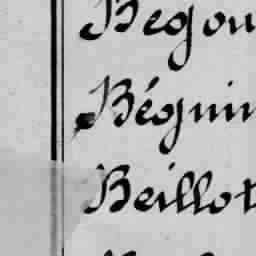 Bégou
Béguin
Beillot